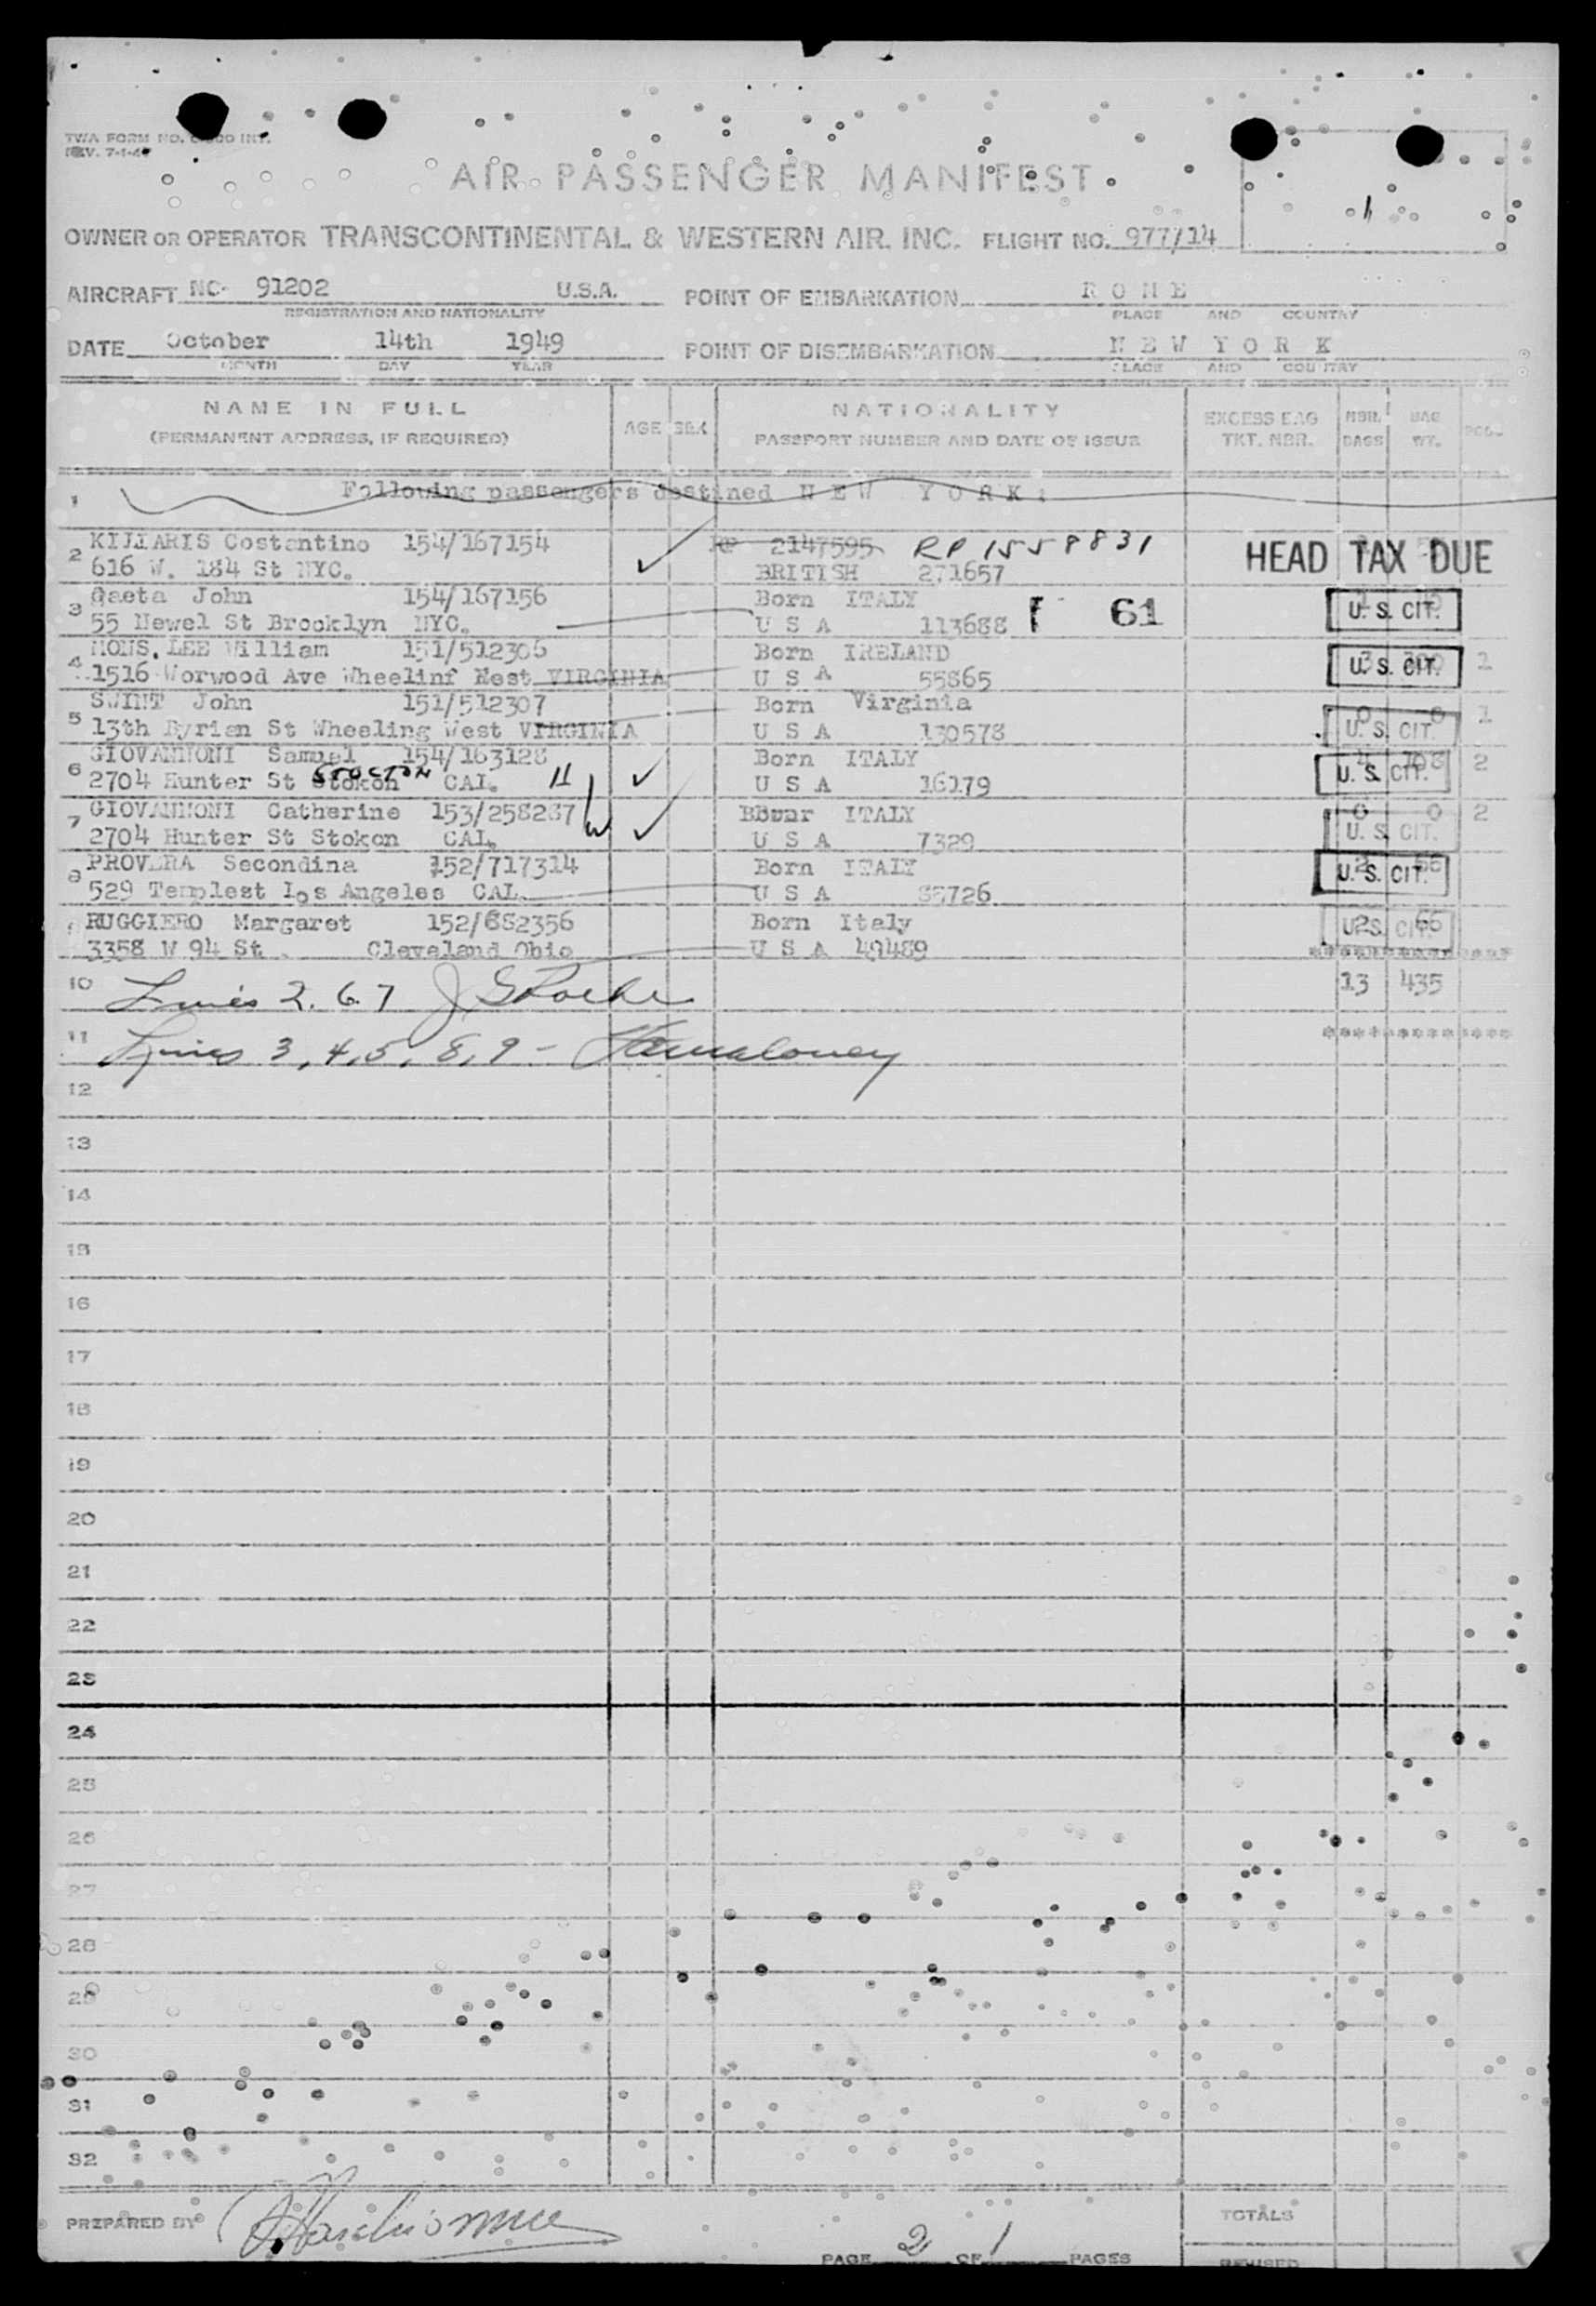 TWA FORM NO. INT.
REV. 7-1-4
AIR PASSENGER MANIFEST
OWNER OR OPERATOR TRANSCONTINENTAL & WESTERN AIR. INC. FLIGHT NO. 977/14
AIRCRAFT NC- 91202 U.S.A. POINT OF EMBARKATION R O M E
REGISTRATION AND NATIONALITY PLACE AND COUNTRY
DATE October 14th 1949 POINT OF DISEMBARKATION N E W Y O R K
MONTH DAY YEAR PLACE AND COUNTRY
NAME IN FULL AGE SEX NATIONALITY EXCESS BAG NBR. BAG
(PERMANENT ADDRESS, IF REQUIRED) PASSPORT NUMBER AND DATE OF ISSUE TKT. NBR. BAGS WT.
1 Following passengers destined N E W Y O R K :
2 KIJIARIS Costantino 154/167154 RP 2147595 RP 1558831 HEAD TAX DUE
616 W. 184 St NYC. BRITISH 271657
3 Gaeta John 154/167156 Born ITALY 61 U. S. CIT.
55 Newel St Brooklyn NYC. U S A 113688
4 MONS. LEE William 151/512306 Born IRELAND U. S. CIT. 1
1516 Worwood Ave Wheelinf West VIRGINIA U S A 55865
5 SWINT John 151/512307 Born Virginia 0 0 1
13th Byrian St Wheeling West VIRGINIA U S A 130578 U. S. CIT.
6 GIOVANNONI Samuel 154/163128 Born ITALY 4 108 2
2704 Hunter St Stokon STOCTON CAL. H U S A 16179 U. S. CIT.
7 GIOVANNONI Catherine 153/258267 W Born ITALY 0 0 2
2704 Hunter St Stokon CAL. U S A 7329 U. S. CIT.
8 PROVERA Secondina 152/717314 Born ITALY U. S. CIT.
529 Templest Los Angeles CAL. U S A 85726
RUGGIERO Margaret 152/682356 Born Italy 2 66 U.S. CIT.
3358 W 94 St . Cleveland Ohio U S A 49489
10 Lines 2. 6. 7 J S Roche 13 435
11 Lines 3, 4, 5, 8, 9 - Maloney
12
13
14
15
16
17
18
19
20
21
22
23
24
25
26
27
28
29
30
31
32
PREPARED BY TOTALS
PAGE 2 OF 1 PAGES REVISED